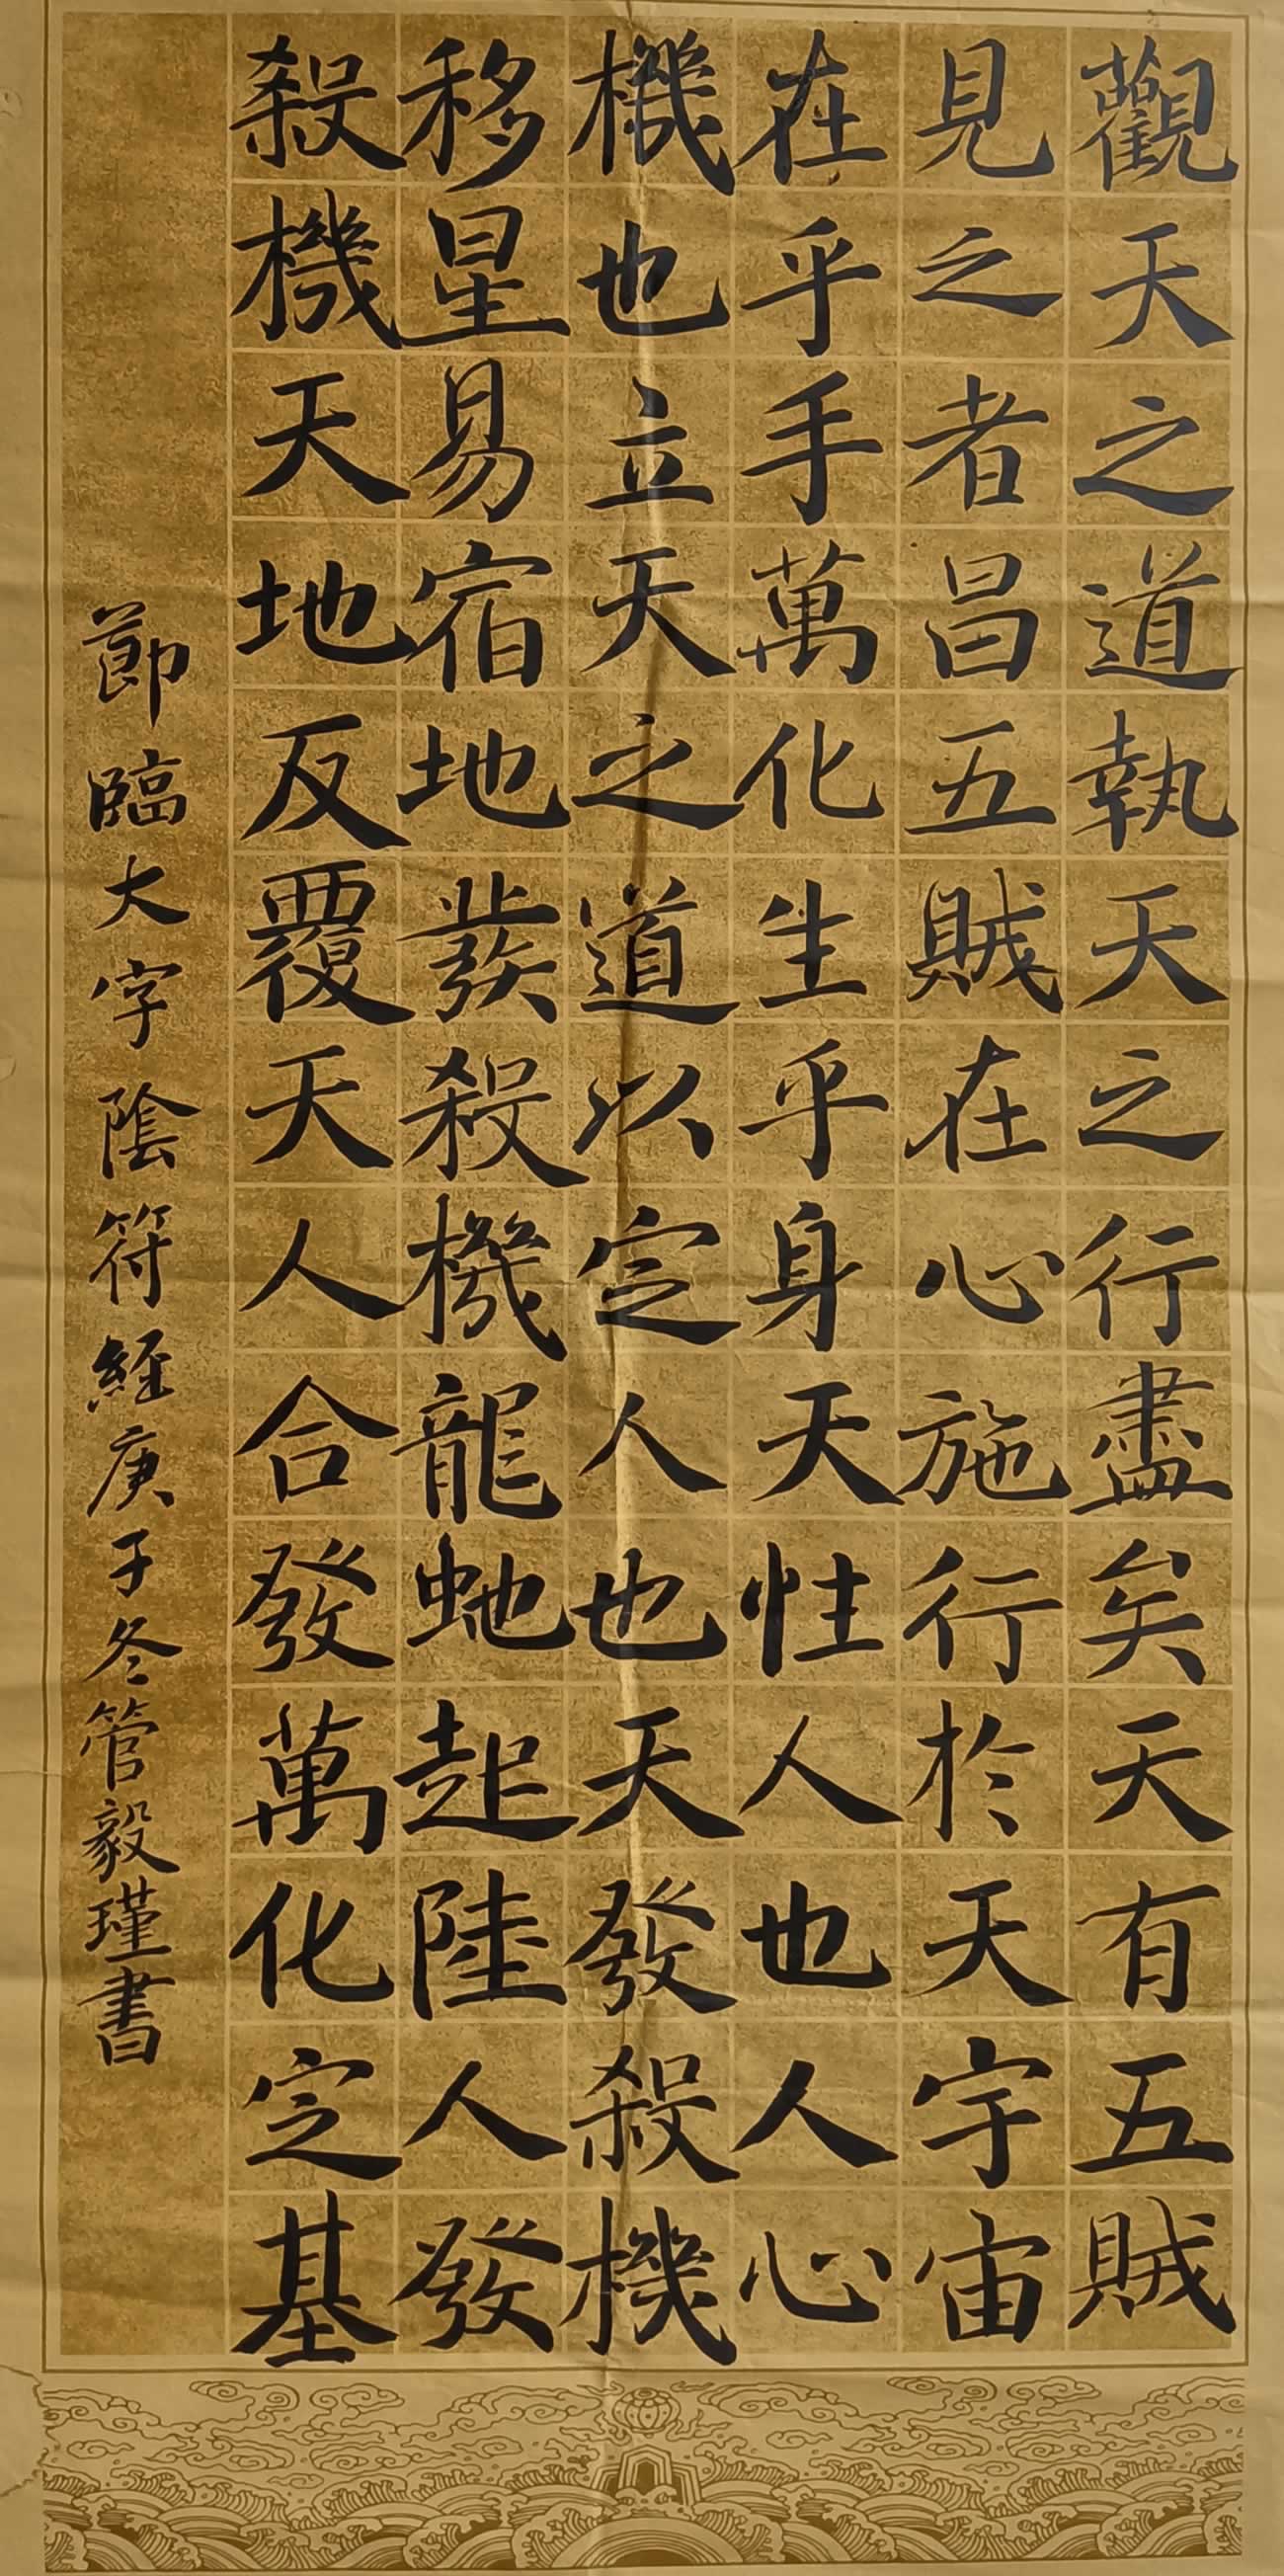 觀天之道執天之行盡矣天有五賊
見之者昌五賊在心施行於天宇宙
在乎手萬化生乎身天性人也人心
機也立天之道以定人也天發殺機
移星易宿地發殺機龍虵起陸人發
殺機天地反覆天人合發萬化定基
節臨大字陰符經庚子冬管毅瑾書